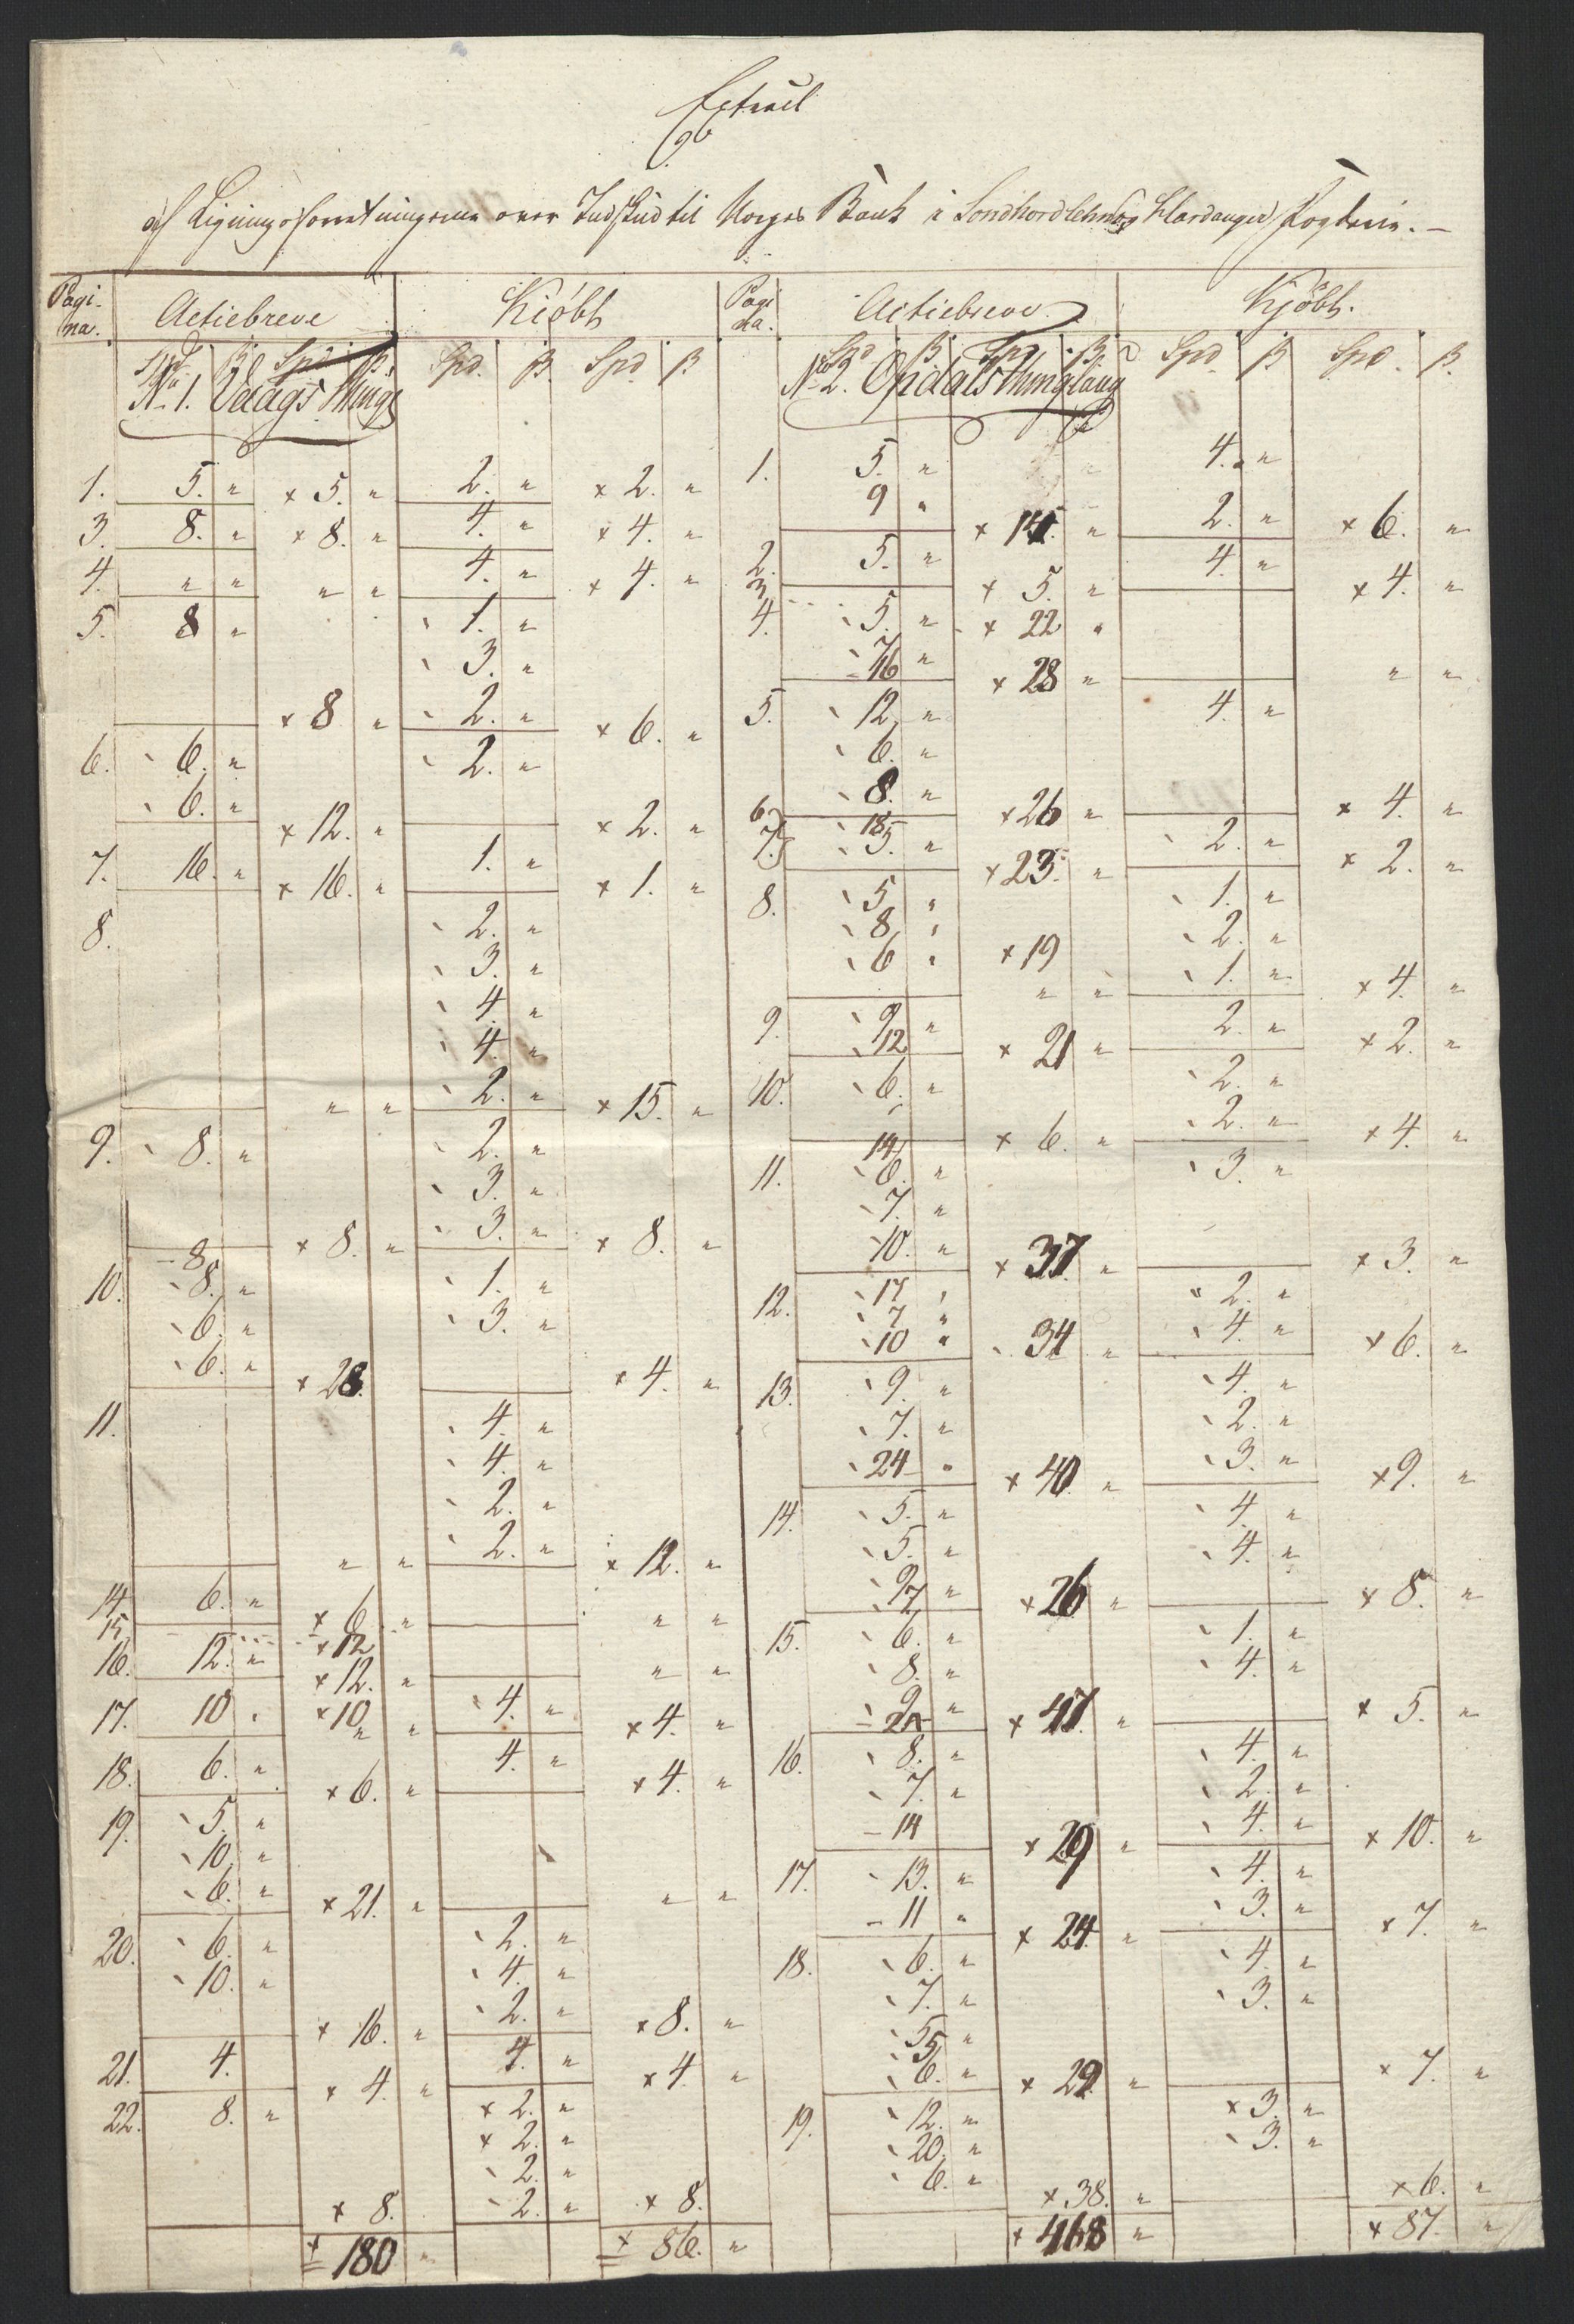 Extract
af Ligningsforretningerne over Indskud til Norges Bank i Søndhordlehn og Hardanger Fogderie. –
Pagina. | Actiebreve | Kiöbt | Pagina. | Actiebreve | Kjöbt.
Spd ß Spd ß | Spd. ß. Spd ß | Spd ß Spd ß | Spd ß Spd. ß.
No 1. Vaags Thingl | No 2. Opdals Thinglaug
1. 5. " × 5. " 2. " × 2. " | 1. 5. " 4. "
3. 8. " × 8. " 4. " × 4. " | 9 " × 14. " 2. " × 6. "
4. " " " " 4. " × 4. " | 2. 5. " × 5. " 4. " × 4. "
5. 8 " 1. " | 3 × 22 "
3. " | 4. 5. "
7 "
× 8 " 2. " × 6. " | 16 × 28 " " "
6. 6. " 2. " | 5. 12 " 4. "
6. " | 6. "
× 12. " × 2. " | 8. " × 26 " × 4. "
7. 16. " × 16. " 1. " × 1. " | 6 18
7. 5. " × 23. " 2. " × 2. "
8. 2. " | 8. 5 " 1. "
3. " | 8 " 2. "
4. " | 6 " × 19 1. " × 4. "
4. " | 9. 9 " 2. "
12 × 21 " × 2. "
" " 2. " × 15. " | 10. 6. " 2. "
× 6. " 2. " × 4. "
9. 8. " 2. " | 14
3. " | 11. 6. " 3. "
× 8. " 3. " × 8. " | 7. "
8 | 10. " × 37. " × 3. "
10. 8. " 1. " | 12. 17 " 2. "
6. " 3. " | 7 " 4. "
6. " × 28. × 4. " | 10 " 34 " × 6. "
11. 4. " | 13. 9. " 4. "
4. " | 7. " 2. "
2. " | 24 " × 40. " 3. " × 9. "
" " 2. " × 12. " | 14. 5. " 4. "
5. " 4. "
14. 6. " × 6 " " " | 9 "
15. × 12 | 7 × 26 " × 8. "
16. 12. " × 12. " " " | 15. 6. " 1. "
8. " 4. "
17. 10 " × 10 " 4. " × 4. " | 9 "
24 × 47. " × 5. "
18. 6. " × 6. " 4. " × 4. " | 16. 8. " 4. "
19. 5. " | 7. " 2. "
10. " | 14 × 29 " 4. " × 10. "
6. " × 21. " " " | 17. 13. " 4. "
11 " × 24 " 3. " × 7. "
20. 6. " 2. " | 18. 6. " 4. "
10. " 4. " | 7. " 3. "
× 16. " 2. " × 8. " | 5 "
5
21. 4. × 4. " 4. " × 4. " | 6. " × 29 " × 7. "
22. 8. " × 2. " | 19. 12. " × 3. "
× 2. " | 20. " 3. "
2. " | 6. "
× 8. 2. " × 8. | × 38. " × 6. "
× 180 " × 86. " | × 468 " × 87. "